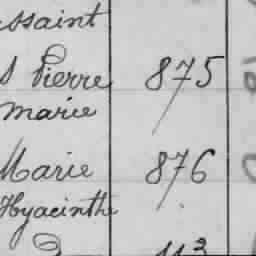 ssaint
Pierre 875
Marie
Marie 876
Hyacinthe
113